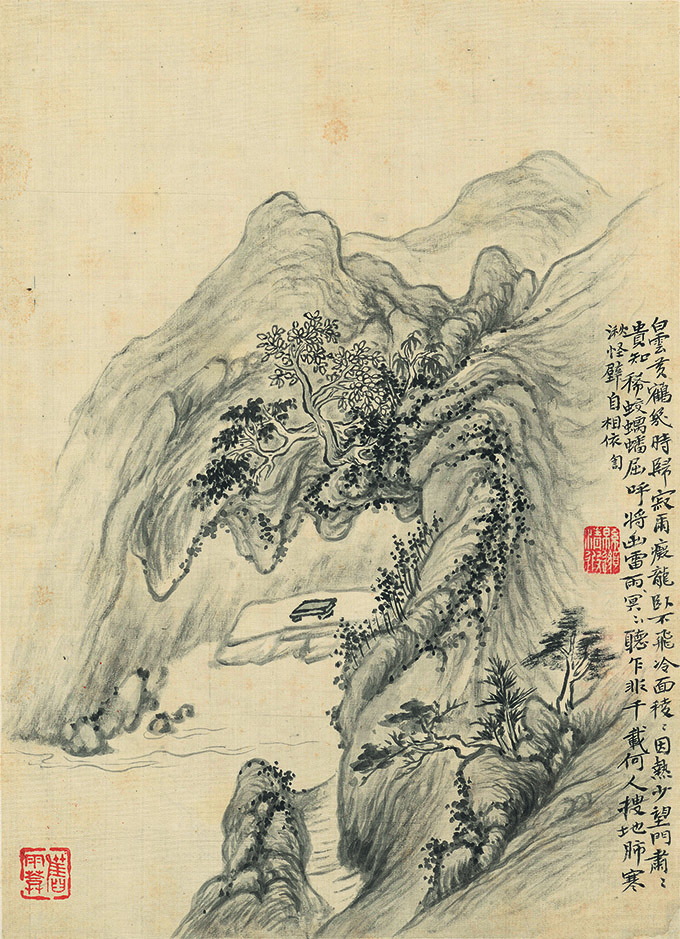 白雲黃鶴幾時歸寂爾癡龍臥不飛冷面稜〻因熱少望門肅〻
貴知稀蛟螭蟠屈呼將出雷雨冥〻聽乍非千載何人搜地肺寒
湫怪壁自相依